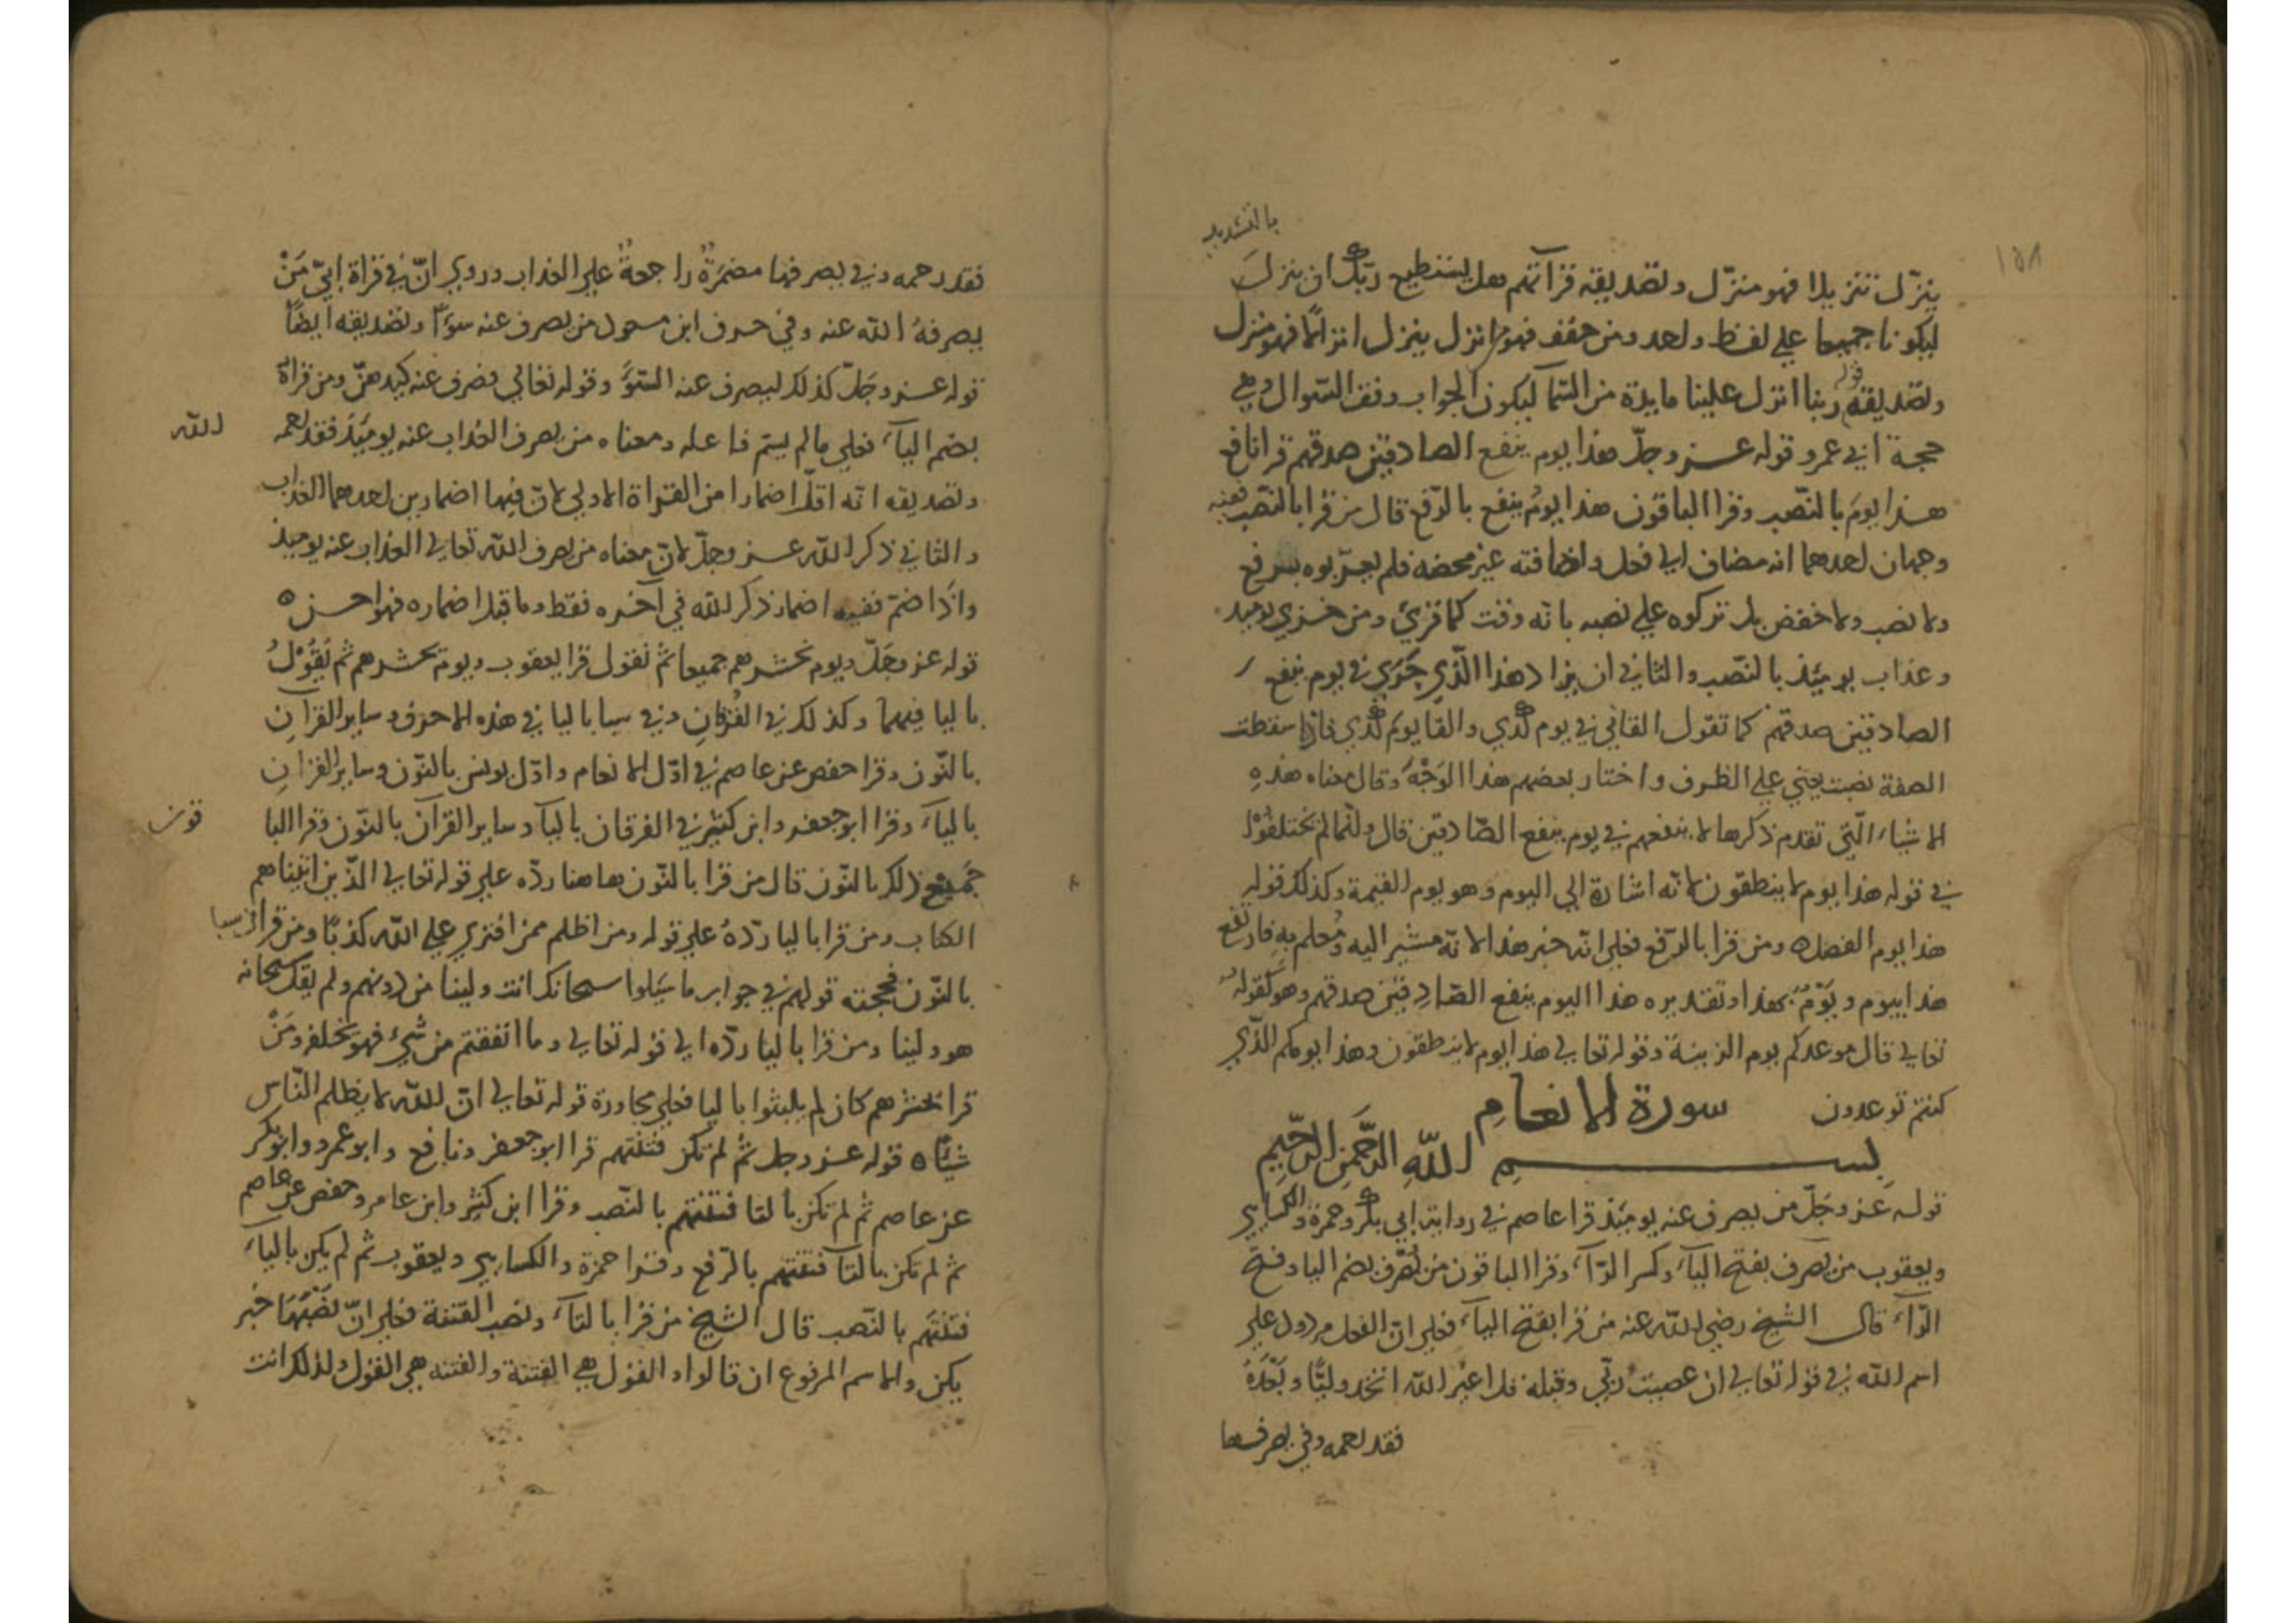 ١٥٨
بالتشديد
ينزّل تنزيلا فهو منزّل وتصديقه قرآتهم هل يستطيع ربّك ان ينزلَ
ليكونا جميعا علي لفظ واحد ومن خفف فهو من انزل ينزل انزالا فهو منزل
وتصديقه قوله ربنا انزل علينا مايدة من السّمآ ليكون الجواب وفق السّوال وهي
حجة ابي عمرو قوله عز وجلّ هذا يوم ينفع الصادقين صدقهم قرا نافع
هذا يومَ بالنّصب وقرا الباقون هذا يومُ ينفع بالرّفع قال من قرا بالنّصب ففيه
وجهان احدهما انه مضاف الي فعل واضافته غير محضه فلم يعربوه برفع
ولا نصب ولا خفض بل تركوه علي نصبه بانه وقت كما قريَ ومن خزي يوميذ
وعذاب يوميَذ بالنّصب والثاني ان يراد هذا الّذي جَرَي في يوم ينفع
الصادقين صدقهم كما تقول القاني في يوم كذي والقا يوم كذي فاذا سقطت
الصفة نصبت يعني علي الظرف واختار بعضهم هذا الوَجْهَ وقال معناه هذهِ
الاشياء الّتي تقدم ذكرها لا ينفعهم في يوم ينفع الصّادقين قال وانّما لم يختلفُوْا
في قوله هذا يوم لا ينطقون لانه اشارة الي اليوم وهو يوم القيمة وكذلك قوله
هذا يوم الفصل ه ومن قرا بالرّفع فعلي انه خبر هذا لانه مشير اليه ومُعلم به فارتفع
هذا بيوم ويَوْمٌ بهذا وتقديره هذا اليوم ينفع الصّادقين صدقهم وهو كقوله
تعالي قال موعدكم يوم الزينة وقوله تعالي هذا يوم لا ينطقون وهذا يومكم الّذي
كنتم توعدون سورة الانعامِ
بِسـمِ اللّهِ الرَّحمنِ الرحّيمِ
قوله عَز وجَلّ من يصرف عنه يوميَذ قرا عاصم في رواية ابي بكر وحمزة والكسايي
ويعقوب من يَصرف بفتح اليآء وكسر الرّآء وقرا الباقون من يُصَرف بضم اليا وفتح
الرّآء قال الشيخ رضي اللّه عنه من قرا بفتح اليآء فعلي انّ الفعل مردود علي
اسم اللّه في قوله تعالي ان عصيتُ ربّي وقبله قل اغير اللّه اتخذ وليًّا وبَعْدَهُ
فقد رحمه وفي يصرفها
فقد رحمه وفي يصرف ها مضمَرَةٌ راجعةٌ علي العذاب وروي انّ في قراة ابيّ مَنْ
يصرفهُ اللّه عنه وفي حرف ابن مسعود من يصرف عنه سوءًا وتصديقه ايضًا
قوله عز وجَلّ كذلك ليصرف عنه السّوَء وقوله تعالي فصرف عنه كيدهنّ ومن قراهُ
بضم اليآء فعلي ما لم يسَم فاعله ومعناه من يصرف العَذاب عنه يوميَذ فقد رحمه
اللّه
وتصديقه انه اقلّ اضمارا من القراة الاولي لانّ فيها اضمارين احدهما العذاب
والثاني ذكر اللّه عز وجلّ لانّ معناه من يصرف اللّه تعالي العذاب عنه يوميذ
واذا ضمّ ففيه اضمار ذكر اللّه في آخره فقط وما قل اضماره فهو احسن ه
قوله عز وجَلّ ويوم نحشرهم جميعا ثمّ نقول قرا يعقوب ويوم يحشرهم ثم يَقُوْلُ
باليا فيهما وكذلك في الفُرقانِ وفي سبا باليا في هذه الاحرف وساير القرآنِ
بالنّون وقرا حفص عن عاصم في اوّل الانعام واوّل يونس بالنّون وساير القرانِ
بالياَء وقرا ابو جعفر وابن كثير في الفرقان باليآء وساير القرآن بالنّون وقرا البا
قون
جَميْعِ ذلك بالنّون قال من قرا بالنّون هاهنا ردّه علي قوله تعالي الذّين اتيناهم
الكتاب ومن قرا باليا ردّهُ علي قوله ومن اظلم ممن افتري علي اللّه كذبًا ومن قرا في سبا
بالنّون فحجته قولهم في جواب ما سيَلوا سبحانك انت ولينا من دونهم ولم يقل سبحانه
هو ولينا ومن قرا باليا ردّه الي قوله تعالي وما انفقتم من شيءٍ فهو يخلفه ومَنْ
قرا نحشرهم كان لم يلبثوا باليا فعلي مجاورة قوله تعالي انّ اللّه لا يظلم النّاس
شيًا ه قوله عز وجل ثمّ لم تكن فتنتهم قرا ابو جعفر ونافع وابو عمرو وابو بكر
عن عاصم ثم لم تكن بالتا فتنتهم بالنّصب وقرا ابن كثير وابن عامر وحفص عن عاصم
ثم لم تكن بالتآ فتنتهم بالرّفع وقرا حمزة والكسايي ويعقوب ثم لم يكن بالياَء
فتنتَهم بالنّصب قال الشيخ من قرا بالتاَء ونصب الفتنة فعلي انّ نَصْبَهَا خبر
يكن والاسم المرفوع ان قالوا والقول هي الفتنة والفتنه هي القول ولذلك انث